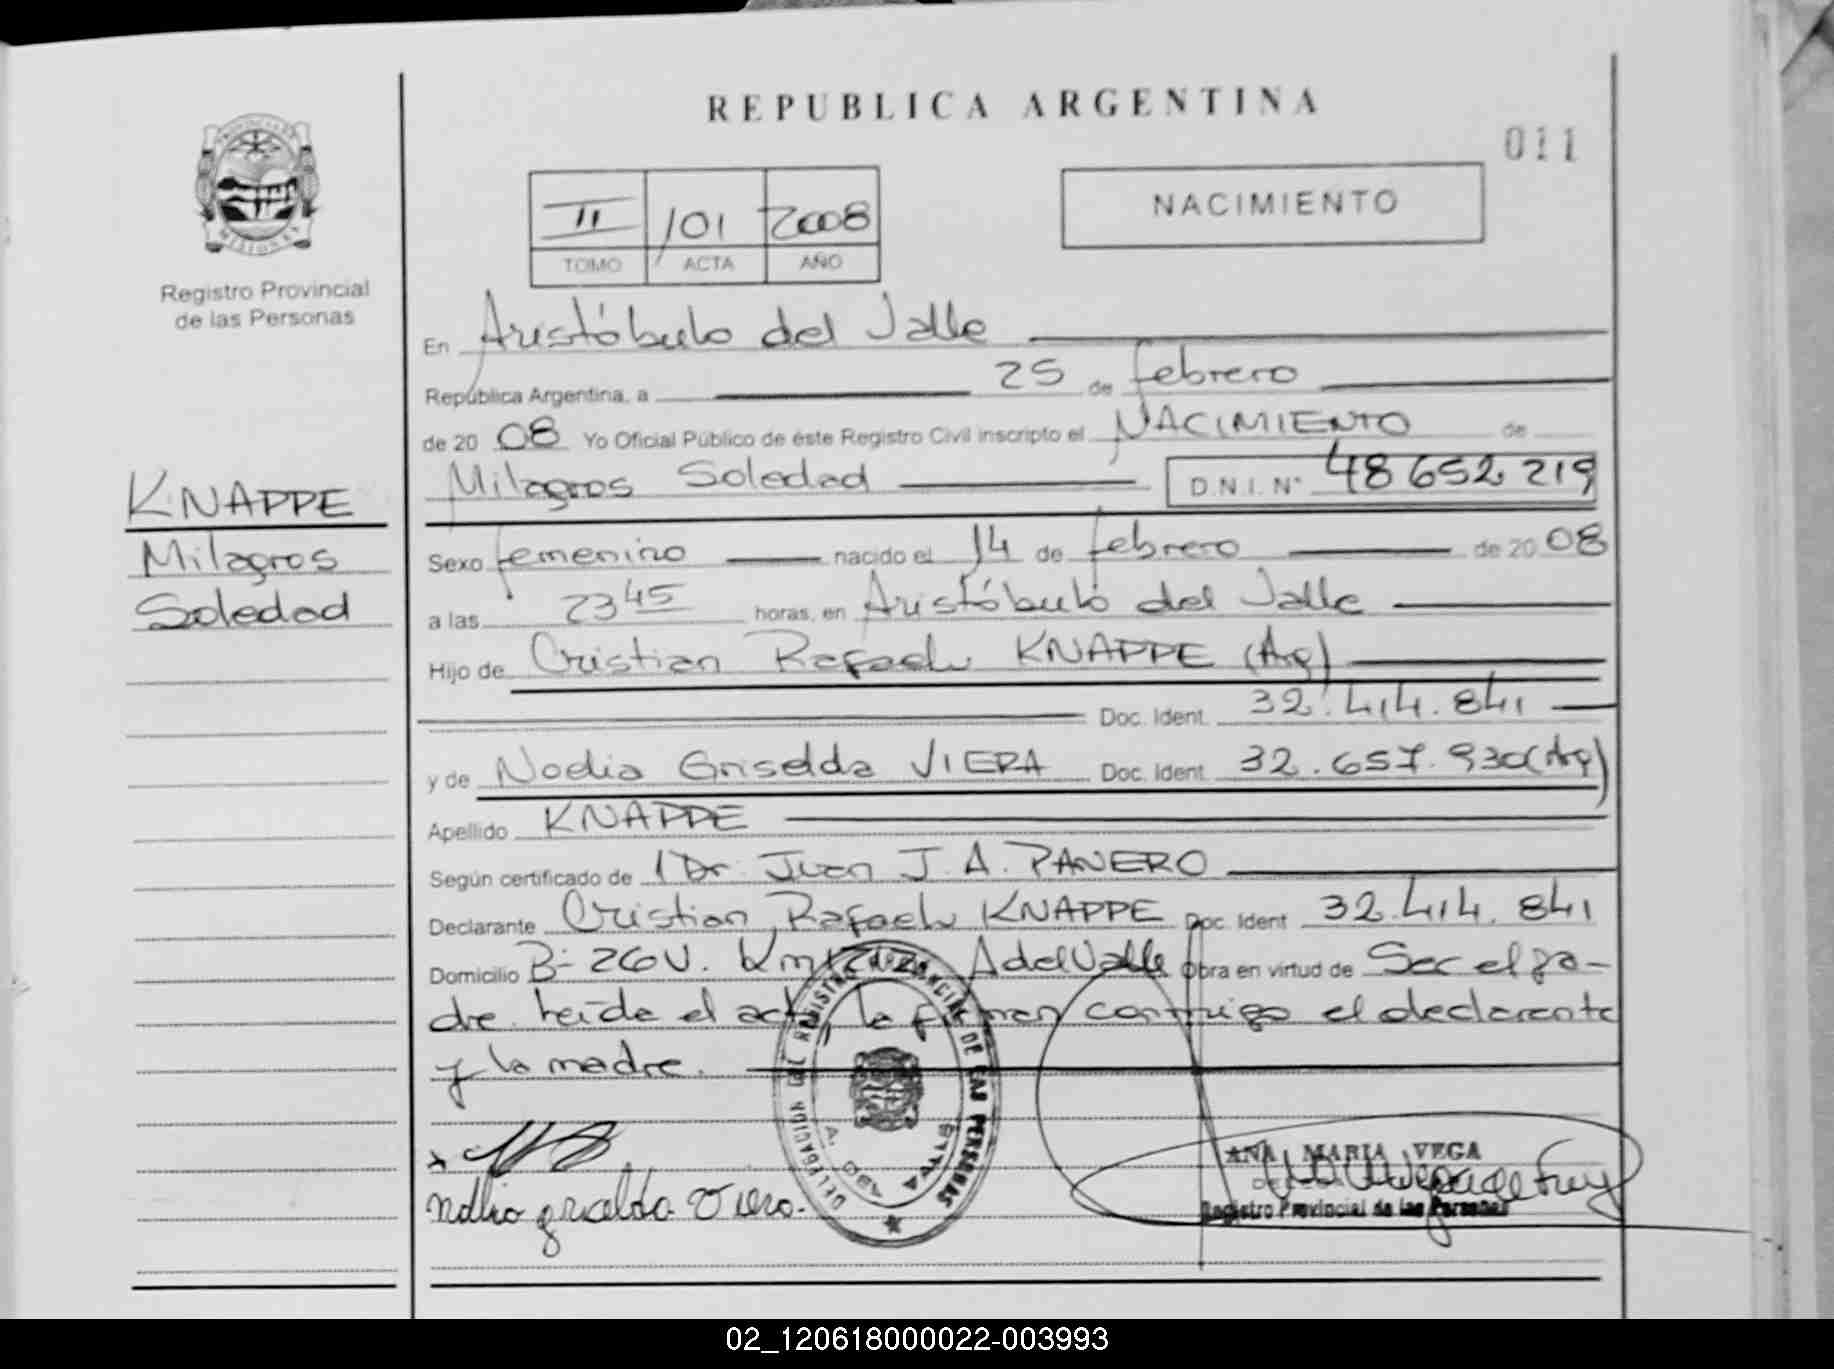 REPUBLICA ARGENTINA
011
PROVINCIA DE
MISIONES
Registro Provincial
de las Personas
II 101 2008
TOMO ACTA AÑO
NACIMIENTO
En Aristóbulo del Valle
República Argentina, a 25 de febrero
de 20 08 Yo Oficial Público de éste Registro Civil inscripto el NACIMIENTO de
Milagros Soledad D.N.I. N° 48 652 219
KNAPPE
Milagros
Soledad
Sexo femenino nacido el 14 de febrero de 20 08
a las 23 45 horas, en Aristóbulo del Valle
Hijo de Cristian Rafael KNAPPE (Arg)
Doc. Ident. 32.414.841
y de Nodia Griselda VIERA Doc. Ident. 32.657.930 (Arg)
Apellido KNAPPE
Según certificado de Dr. Juan J. A. PANERO
Declarante Cristian Rafael KNAPPE Doc. Ident 32.414.841
Domicilio B- 26 V. Km AdelValle obra en virtud de Ser el pa-
dre. Leída el acta, la firman conmigo el declarante
y la madre.
DELEGACION DEL REGISTRO PROVINCIAL DE LAS PERSONAS
A. DEL VALLE
ANA MARIA VEGA
Registro Provincial de las Personas
02_120618000022-003993